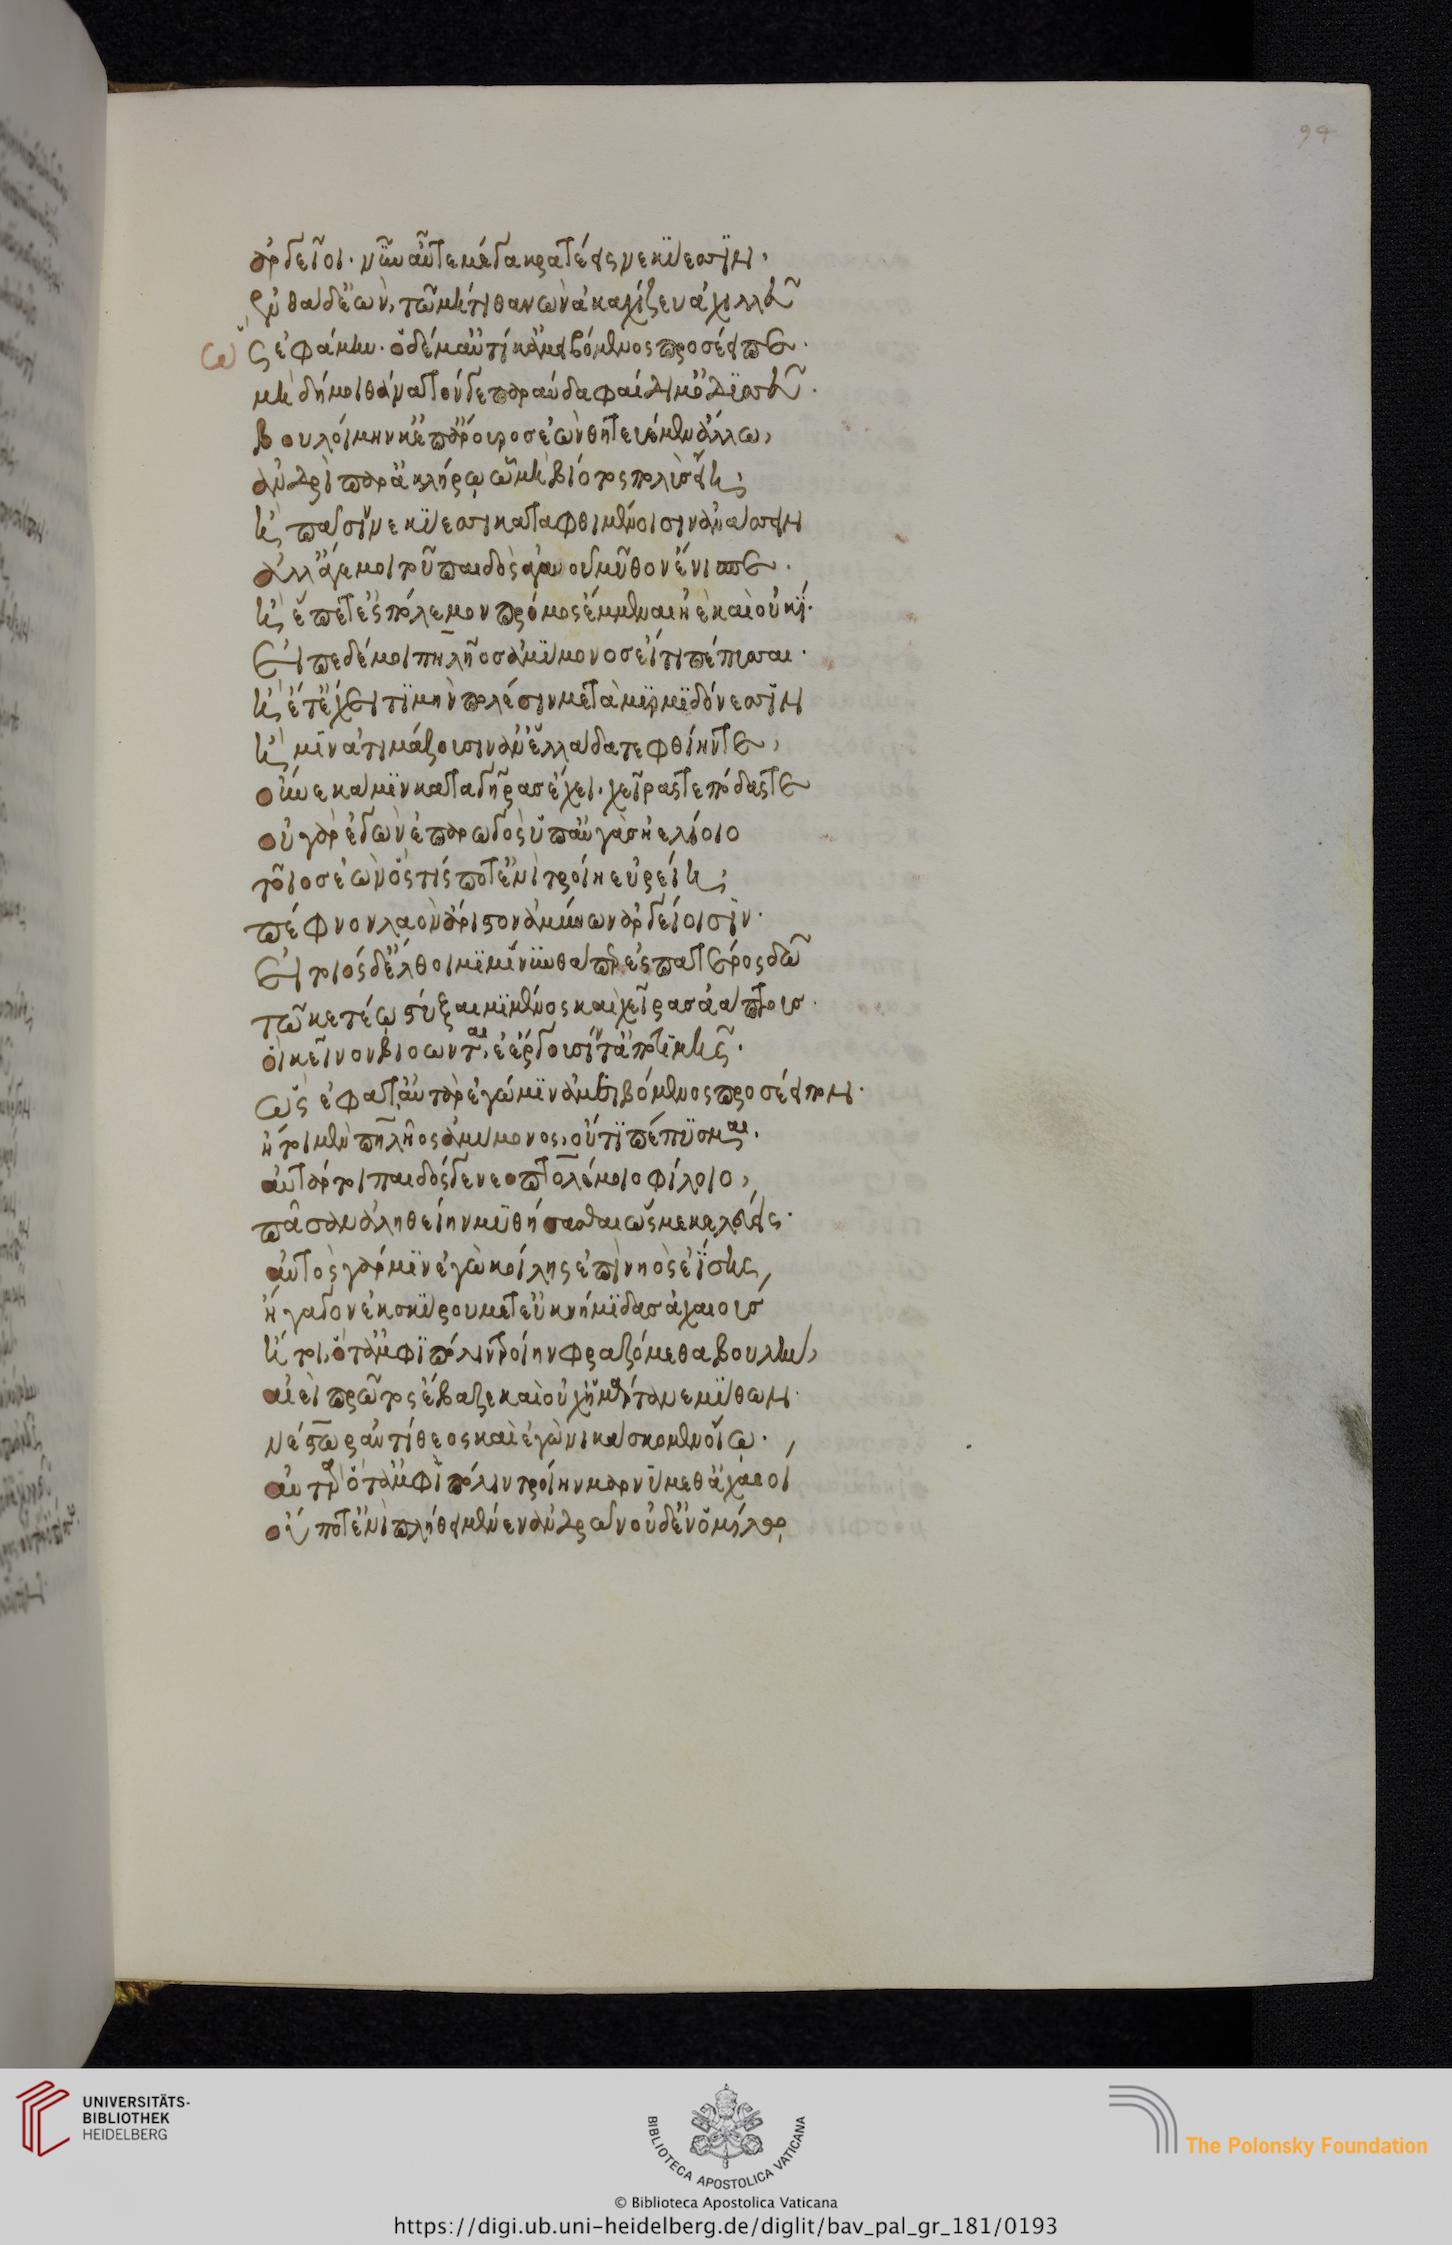 ἀργεῖοι. νῦν αὖτε μέγα κρατέεις νεκύεσσιν,
ἐνθάδ' ἐών, τῶ μή τι θανὼν ἀκαχίζευ ἀχιλλεῦ
ὣς ἐφάμην. ὁ δέ μ' αὐτίκ' ἀμειβόμενος προσέειπεν.
μὴ δή μοι θάνατόν γε παραύδα φαίδιμ' ὀδυσσεῦ.
βουλοίμην κ' ἐπάρουρος ἐὼν θητευέμεν ἄλλω,
ἀνδρὶ παρ' ἀκλήρῳ ᾧ μὴ βίοτος πολὺς εἴη;
ἢ πᾶσιν νεκύεσσι καταφθιμένοισιν ἀνάσσειν
ἀλλ' ἄγε μοι τοῦ παιδὸς ἀγαυοῦ μῦθον ἔνισπε.
ἢ ἕπετ' ἐς πόλεμον πρόμος ἔμμεναι ἠὲ καὶ οὐκί.
εἰπὲ δέ μοι πηλῆος ἀμύμονος εἴ τι πέπυσσαι.
ἢ ἔτ' ἔχει τιμὴν πολέσιν μετὰ μυρμιδόνεσσιν
ἤ μιν ἀτιμάζουσιν ἀν' ἑλλάδα τε φθίην τε,
οὕνεκά μιν κατὰ γῆρας ἔχει, χεῖράς τε πόδας τε
οὐ γὰρ ἐγὼν ἐπαρωγὸς ὑπ' αὐγὰς ἠελίοιο
τοῖος ἐὼν ὅς τίς ποτ' ἐνὶ τροίη εὐρείη;
πέφνον λαὸν ἄριστον ἀμύνων ἀργείοισιν.
εἰ τοιόσδ' ἔλθοιμι μίνυνθά περ ἐς πατέρος δῶ
τῶ κε τέῳ στύξαιμι μένος καὶ χεῖρας ἀάπτους.
οἳ κεῖνον βιόωνται, ἐέργουσίν τ' ἀπὸ τιμῆς.
ὣς ἔφατ' αὐτὰρ ἐγώ μιν ἀμειβόμενος προσέειπον.
ἤτοι μὲν πηλῆος ἀμύμονος, οὔτι πέπυσμαι.
αὐτάρ τοι παιδός γε νεοπτολέμοιο φίλοιο,
πᾶσαν ἀληθείην μυθήσασθαι ὥς με κελεύεις.
αὐτὸς γάρ μιν ἐγὼ κοίλης ἐπὶ νηὸς ἐΐσης,
ἤγαγον ἐκ σκύρου μετ' εὐκνήμιδας ἀχαιούς
ἤτοι, ὅτ' ἀμφὶ πόλιν τροίην φραζόμεθα βουλήν,
αἰεὶ πρῶτος ἔβαζε καὶ οὐχ ἡμάρτανε μύθων.
νέστωρ ἀντίθεος καὶ ἐγὼ νικάσκομεν οἴω.
αὐτὰρ ὅτ' ἀμφὶ πόλιν τροίην μαρνύμεθ' ἀχαιοί
οὔποτ' ἐνὶ πληθεῖ μένεν ἀνδρῶν οὐδ' ἐν ὁμίλῳ
94
UNIVERSITÄTS-
BIBLIOTHEK
HEIDELBERG
BIBLIOTECA APOSTOLICA VATICANA
The Polonsky Foundation
© Biblioteca Apostolica Vaticana
https://digi.ub.uni-heidelberg.de/diglit/bav_pal_gr_181/0193